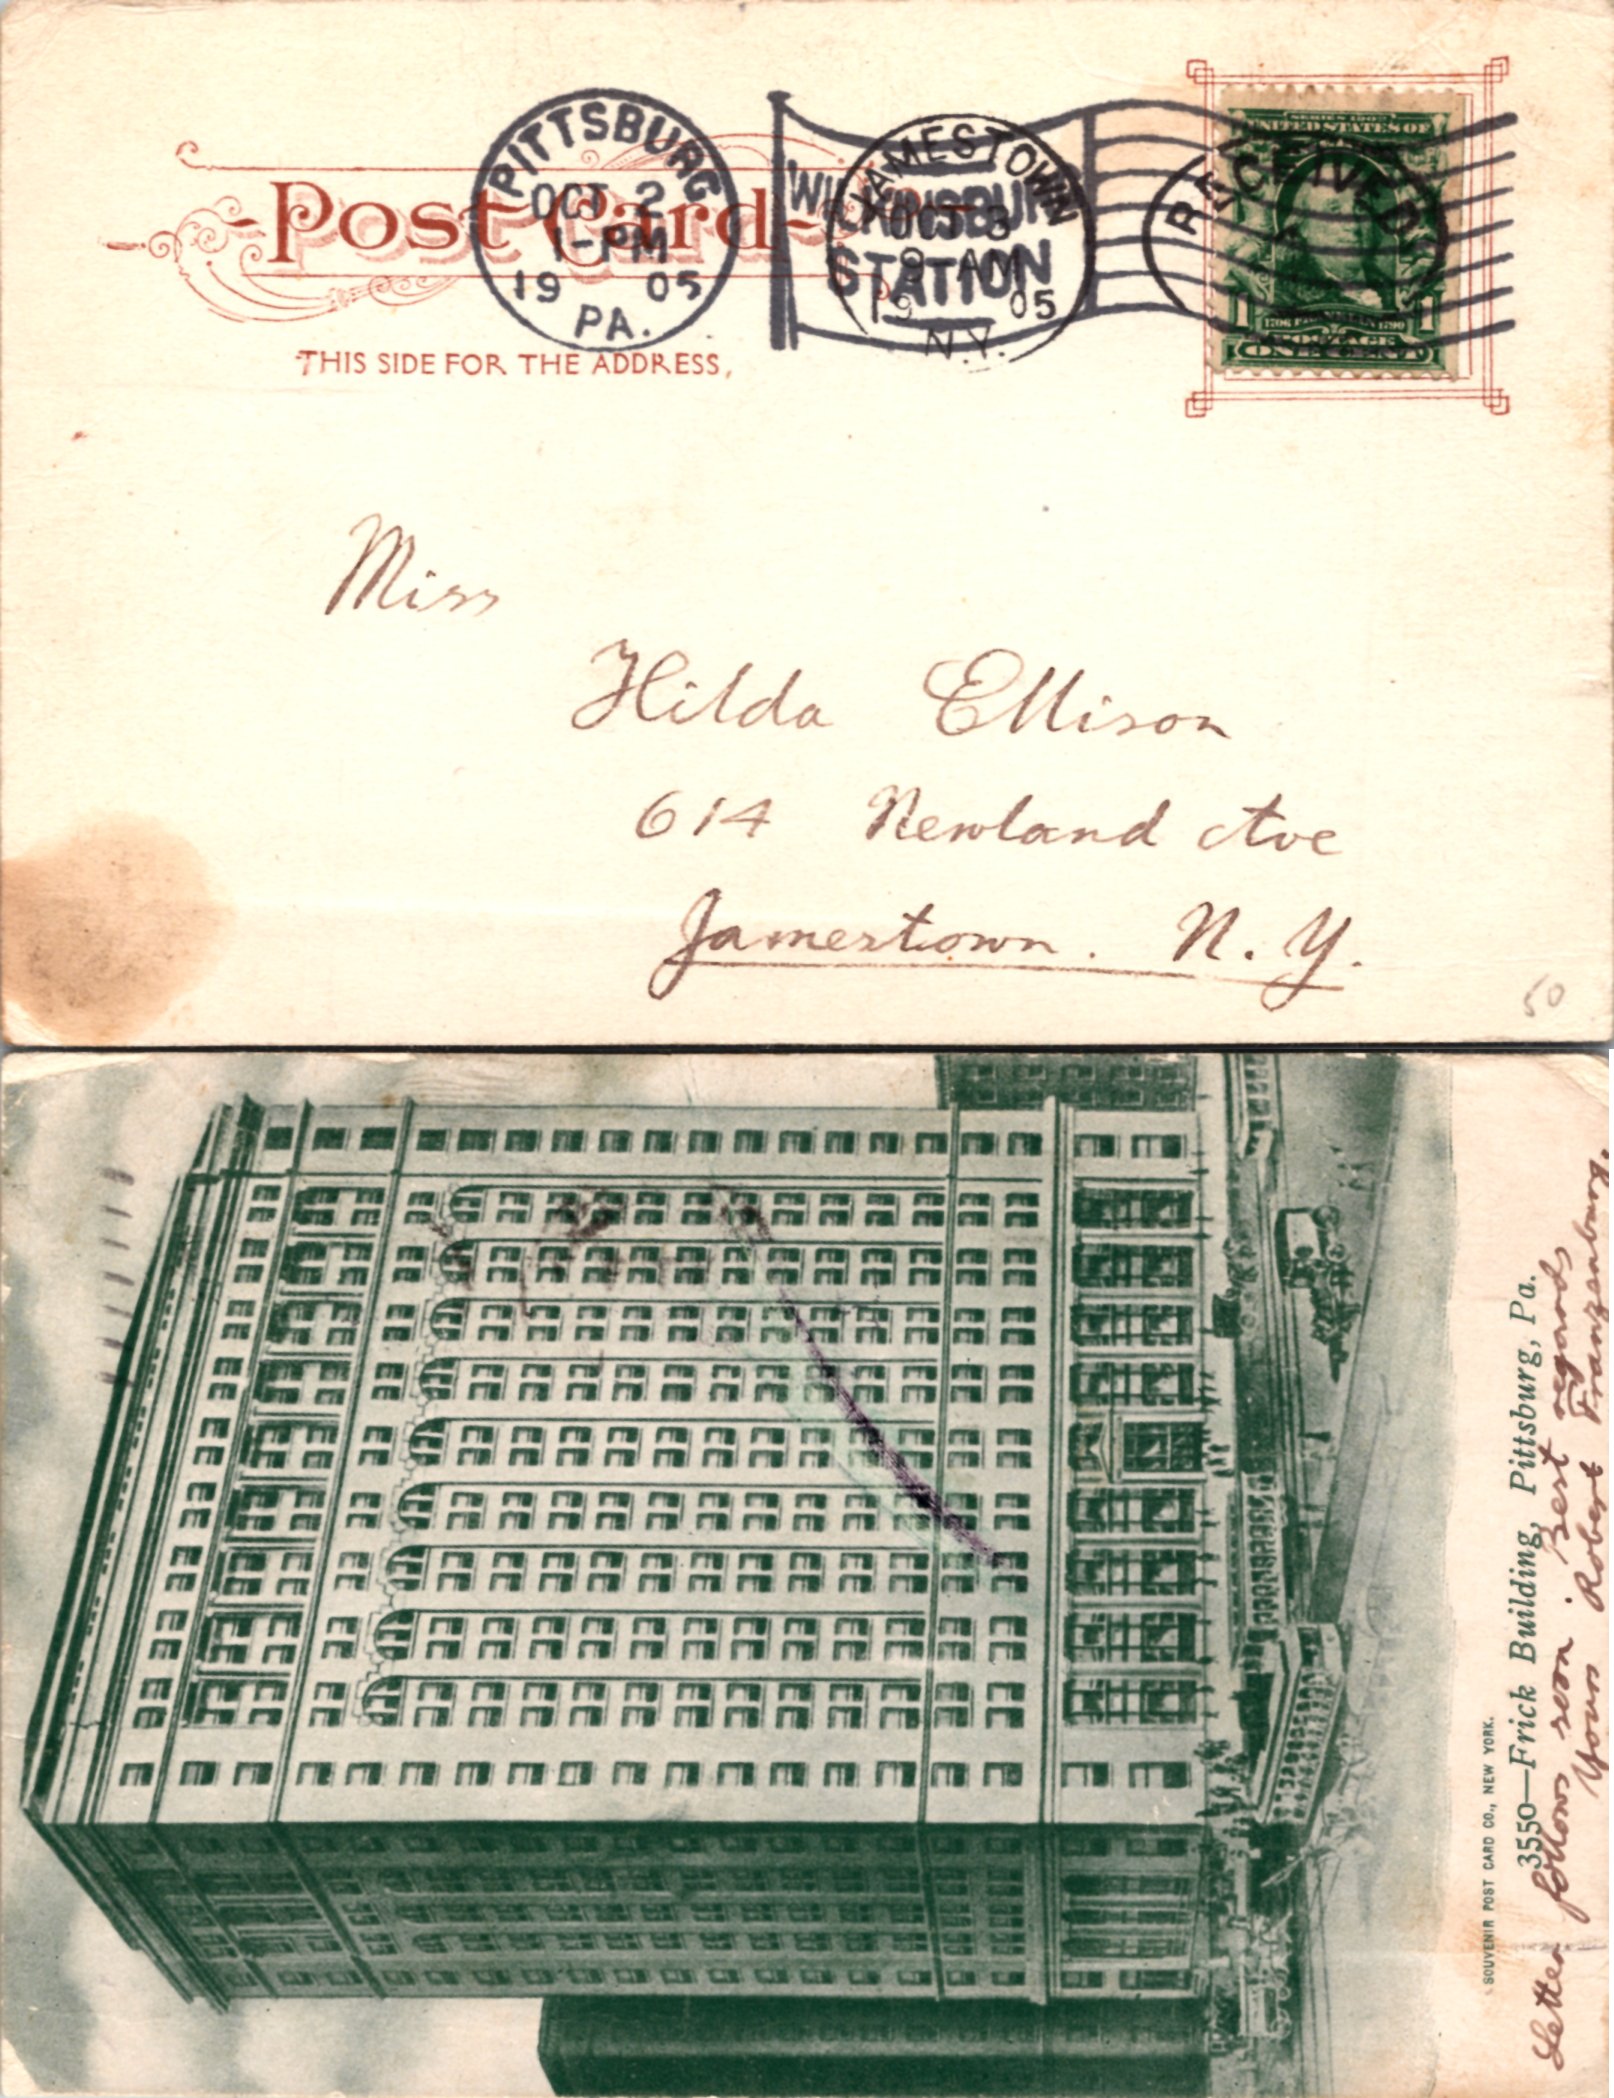 Post Card
THIS SIDE FOR THE ADDRESS.
PITTSBURG
OCT 2
1-PM
19 05
PA.
WILKINSBURG
STATION
JAMESTOWN
OCT 3
9 AM
19 05
N.Y.
RECEIVED
SERIES 1902
UNITED STATES OF
1 1
1706 FRANKLIN 1790
POSTAGE
ONE CENT
Miss
Hilda Ellison
614 Newland Ave
Jamestown. N. Y.
50
SOUVENIR POST CARD CO., NEW YORK.
3550—Frick Building, Pittsburg, Pa.
Letter follows soon. Best regards
Yours Robert Franzenburg.